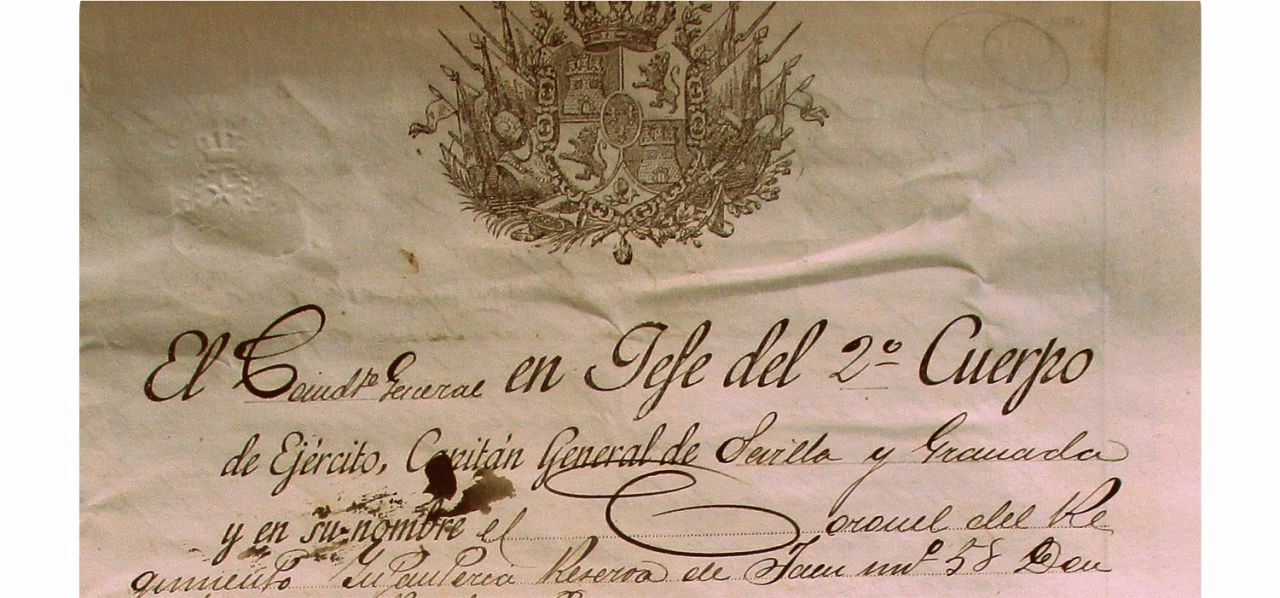 El Comdte General en Jefe del 2º Cuerpo
de Ejército, Capitán General de Sevilla y Granada
y en su nombre el Coronel del Re
gimiento Infanteria Reserva de Jaen nuº 58 Don